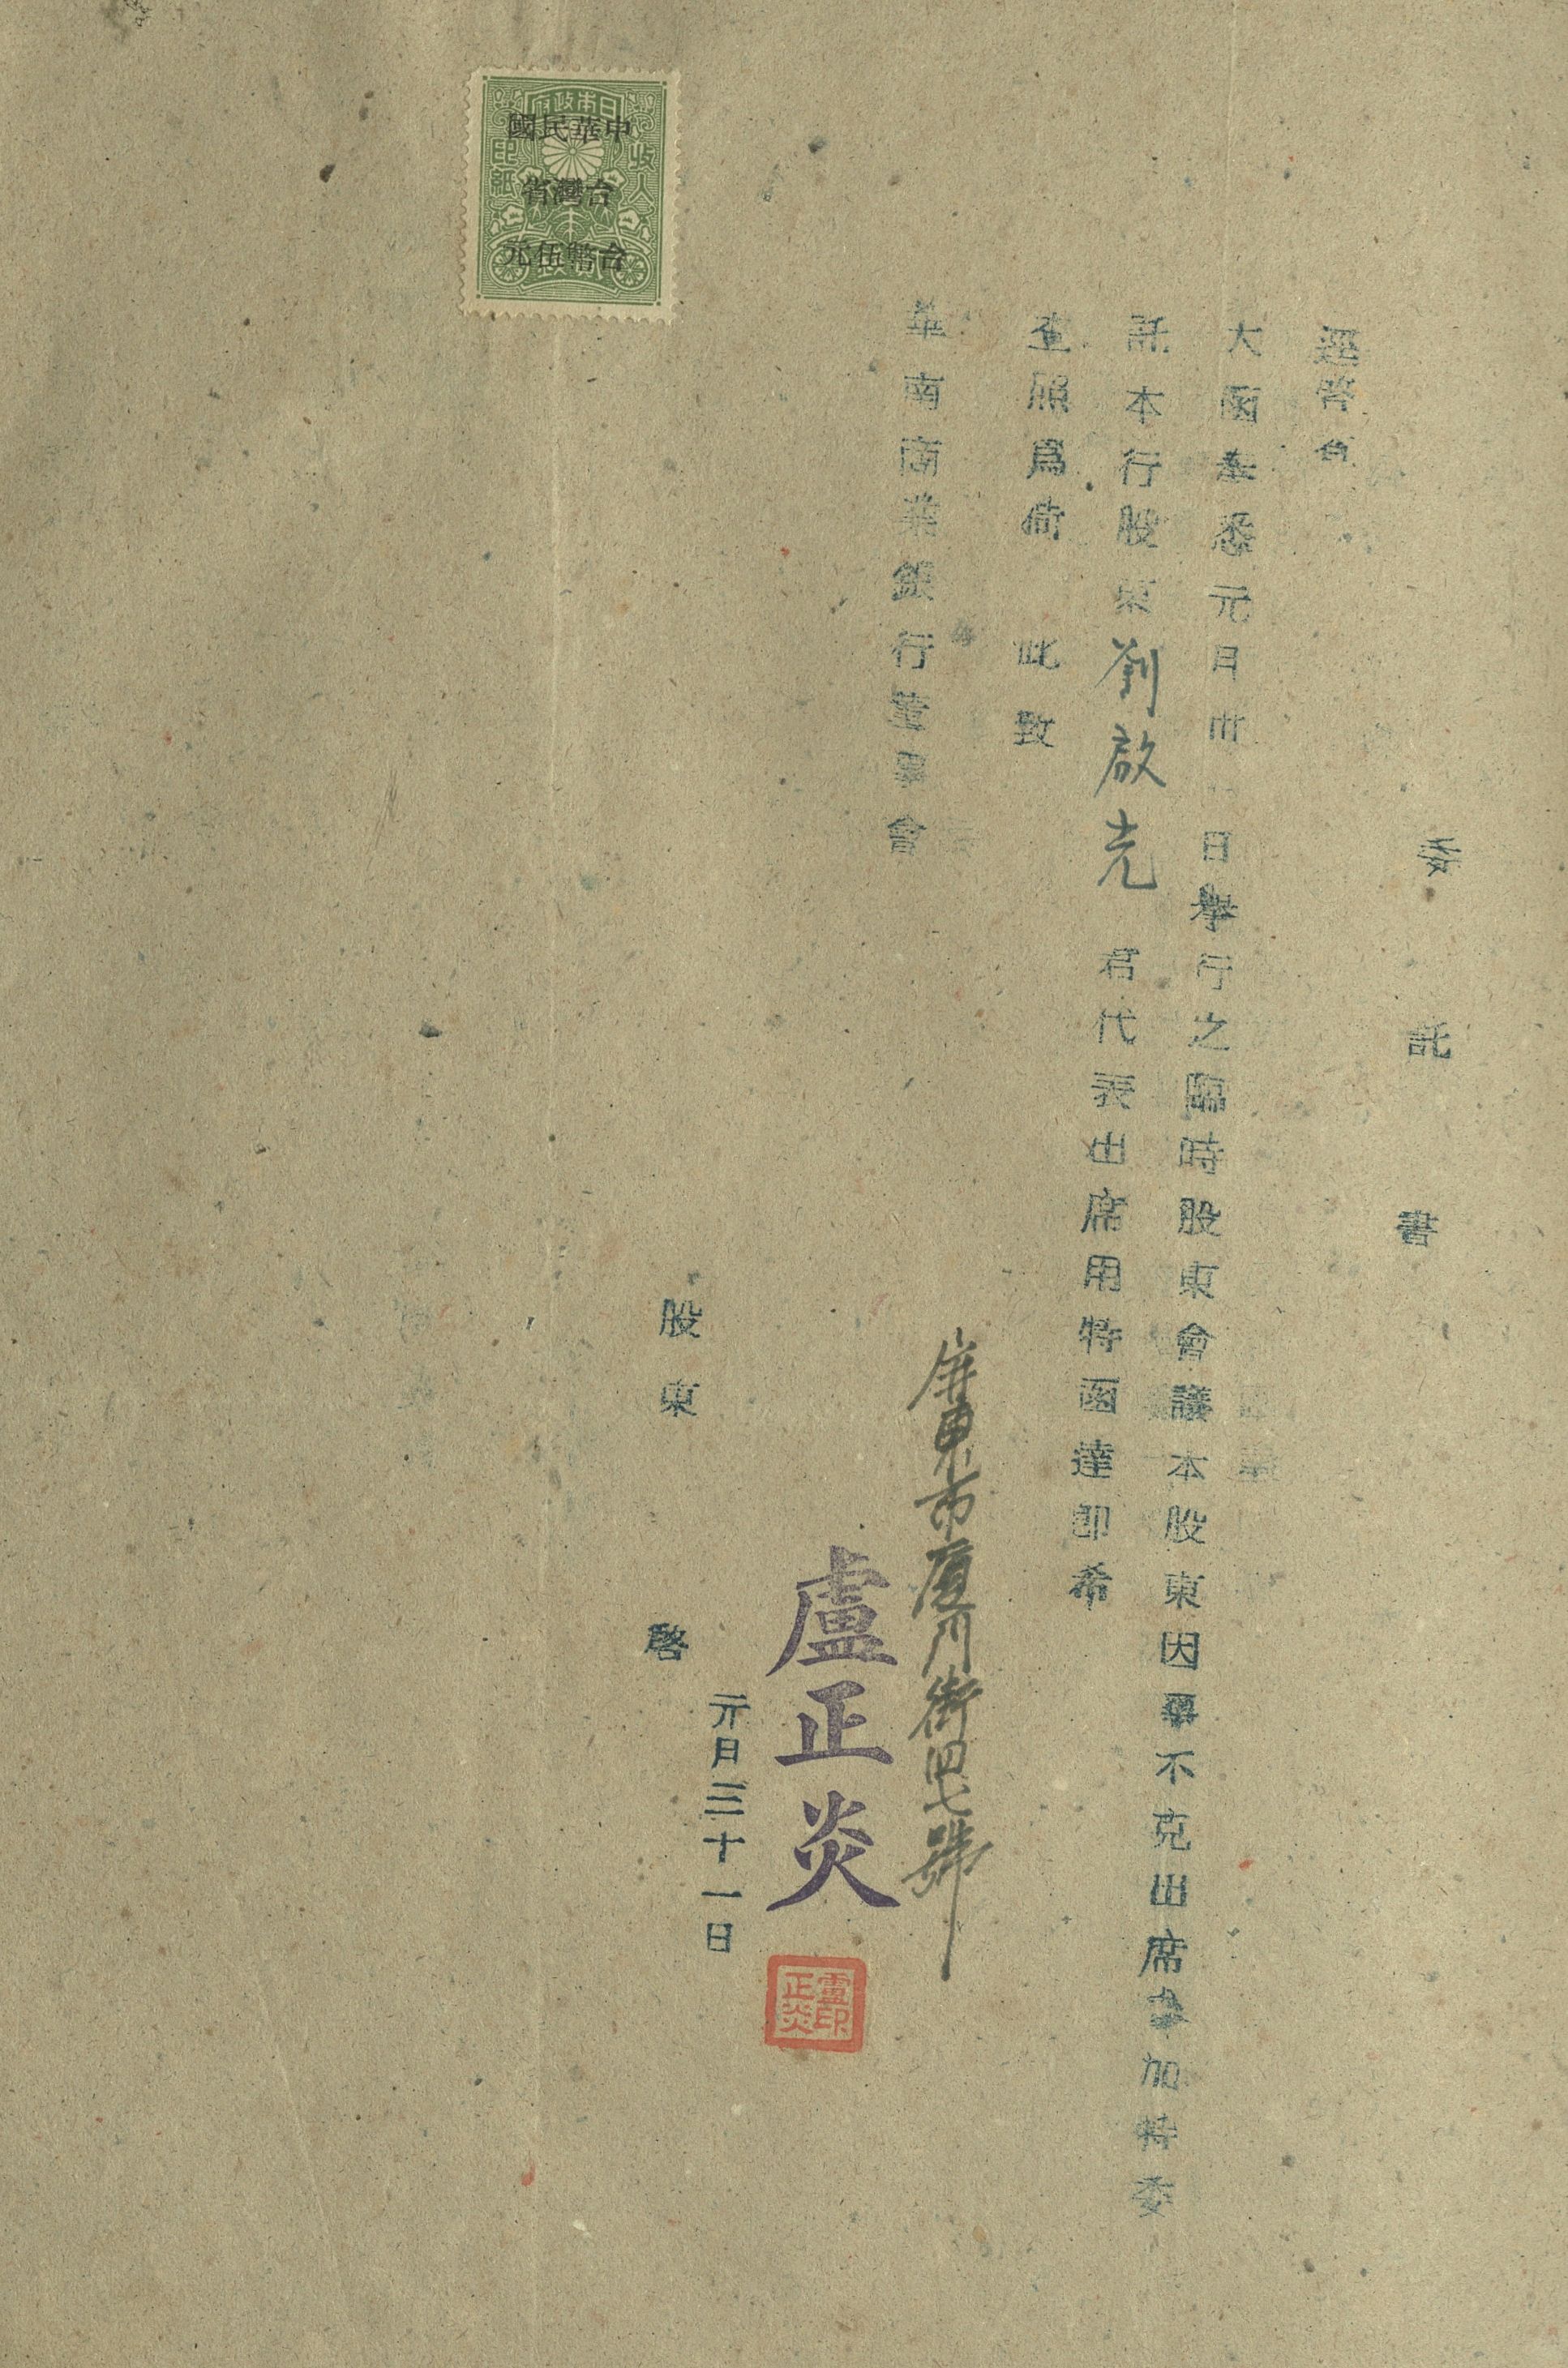 委託書
逕啓者
大函奉悉元月卅日舉行之臨時股東會議本股東因事不克出席參加特委
託本行股東劉啟光君代表出席用特函達即希
查照爲荷 此致
華南商業銀行董事會
屏東市厦門街四七號
盧正炎
元月三十一日
股東 啓
盧印正炎
日本政府
收入印紙
中華民國
台灣省
台幣伍元